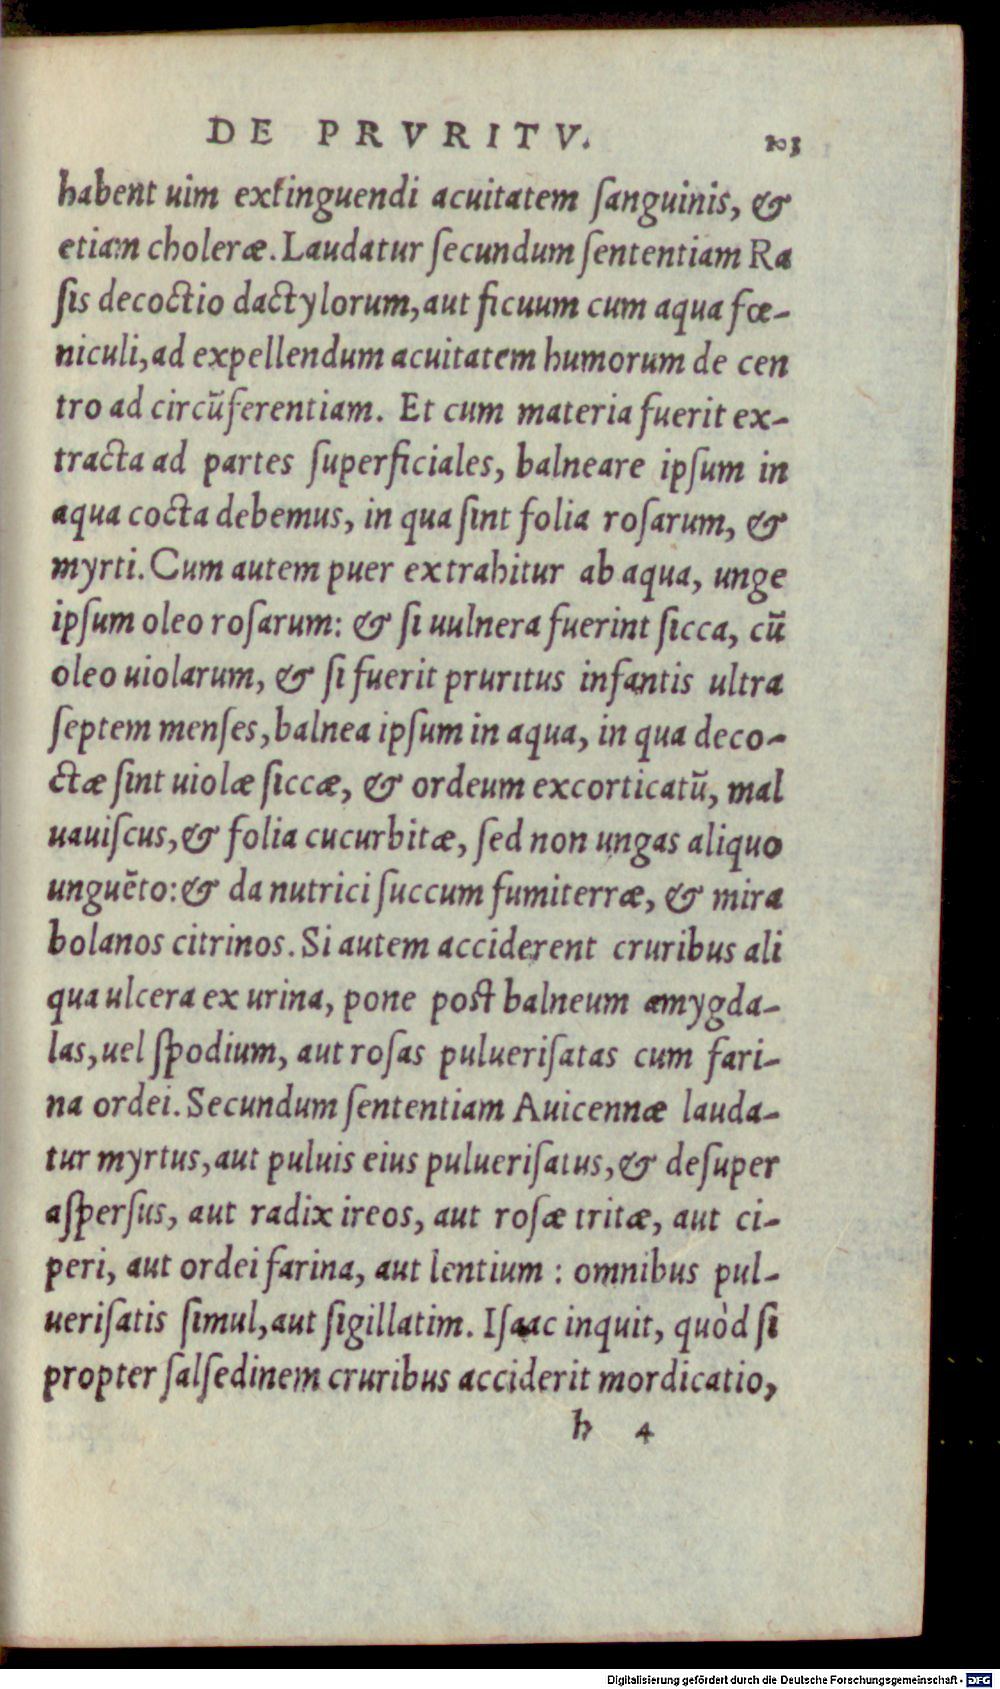 DE PRVRITV. 103
habent uim extinguendi acuitatem ſanguinis, &
etiam choleræ. Laudatur ſecundum ſententiam Ra
ſis decoctio dactylorum, aut ficuum cum aqua fœ-
niculi, ad expellendum acuitatem humorum de cen
tro ad circūferentiam. Et cum materia fuerit ex-
tracta ad partes ſuperficiales, balneare ipſum in
aqua cocta debemus, in qua ſint folia roſarum, &
myrti. Cum autem puer extrahitur ab aqua, unge
ipſum oleo roſarum: & ſi uulnera fuerint ſicca, cū
oleo uiolarum, & ſi fuerit pruritus infantis ultra
ſeptem menſes, balnea ipſum in aqua, in qua deco-
ctæ ſint uiolæ ſiccæ, & ordeum excorticatū, mal
uauiſcus, & folia cucurbitæ, ſed non ungas aliquo
unguēto: & da nutrici ſuccum fumiterræ, & mira
bolanos citrinos. Si autem acciderent cruribus ali
qua ulcera ex urina, pone poſt balneum amygda-
las, uel ſpodium, aut roſas pulueriſatas cum fari-
na ordei. Secundum ſententiam Auicennæ lauda-
tur myrtus, aut puluis eius pulueriſatus, & deſuper
aſperſus, aut radix ireos, aut roſæ tritæ, aut ci-
peri, aut ordei farina, aut lentium : omnibus pul-
ueriſatis ſimul, aut ſigillatim. Iſaac inquit, quòd ſi
propter ſalſedinem cruribus acciderit mordicatio,
h 4
Digitalisierung gefördert durch die Deutsche Forschungsgemeinschaft - DFG